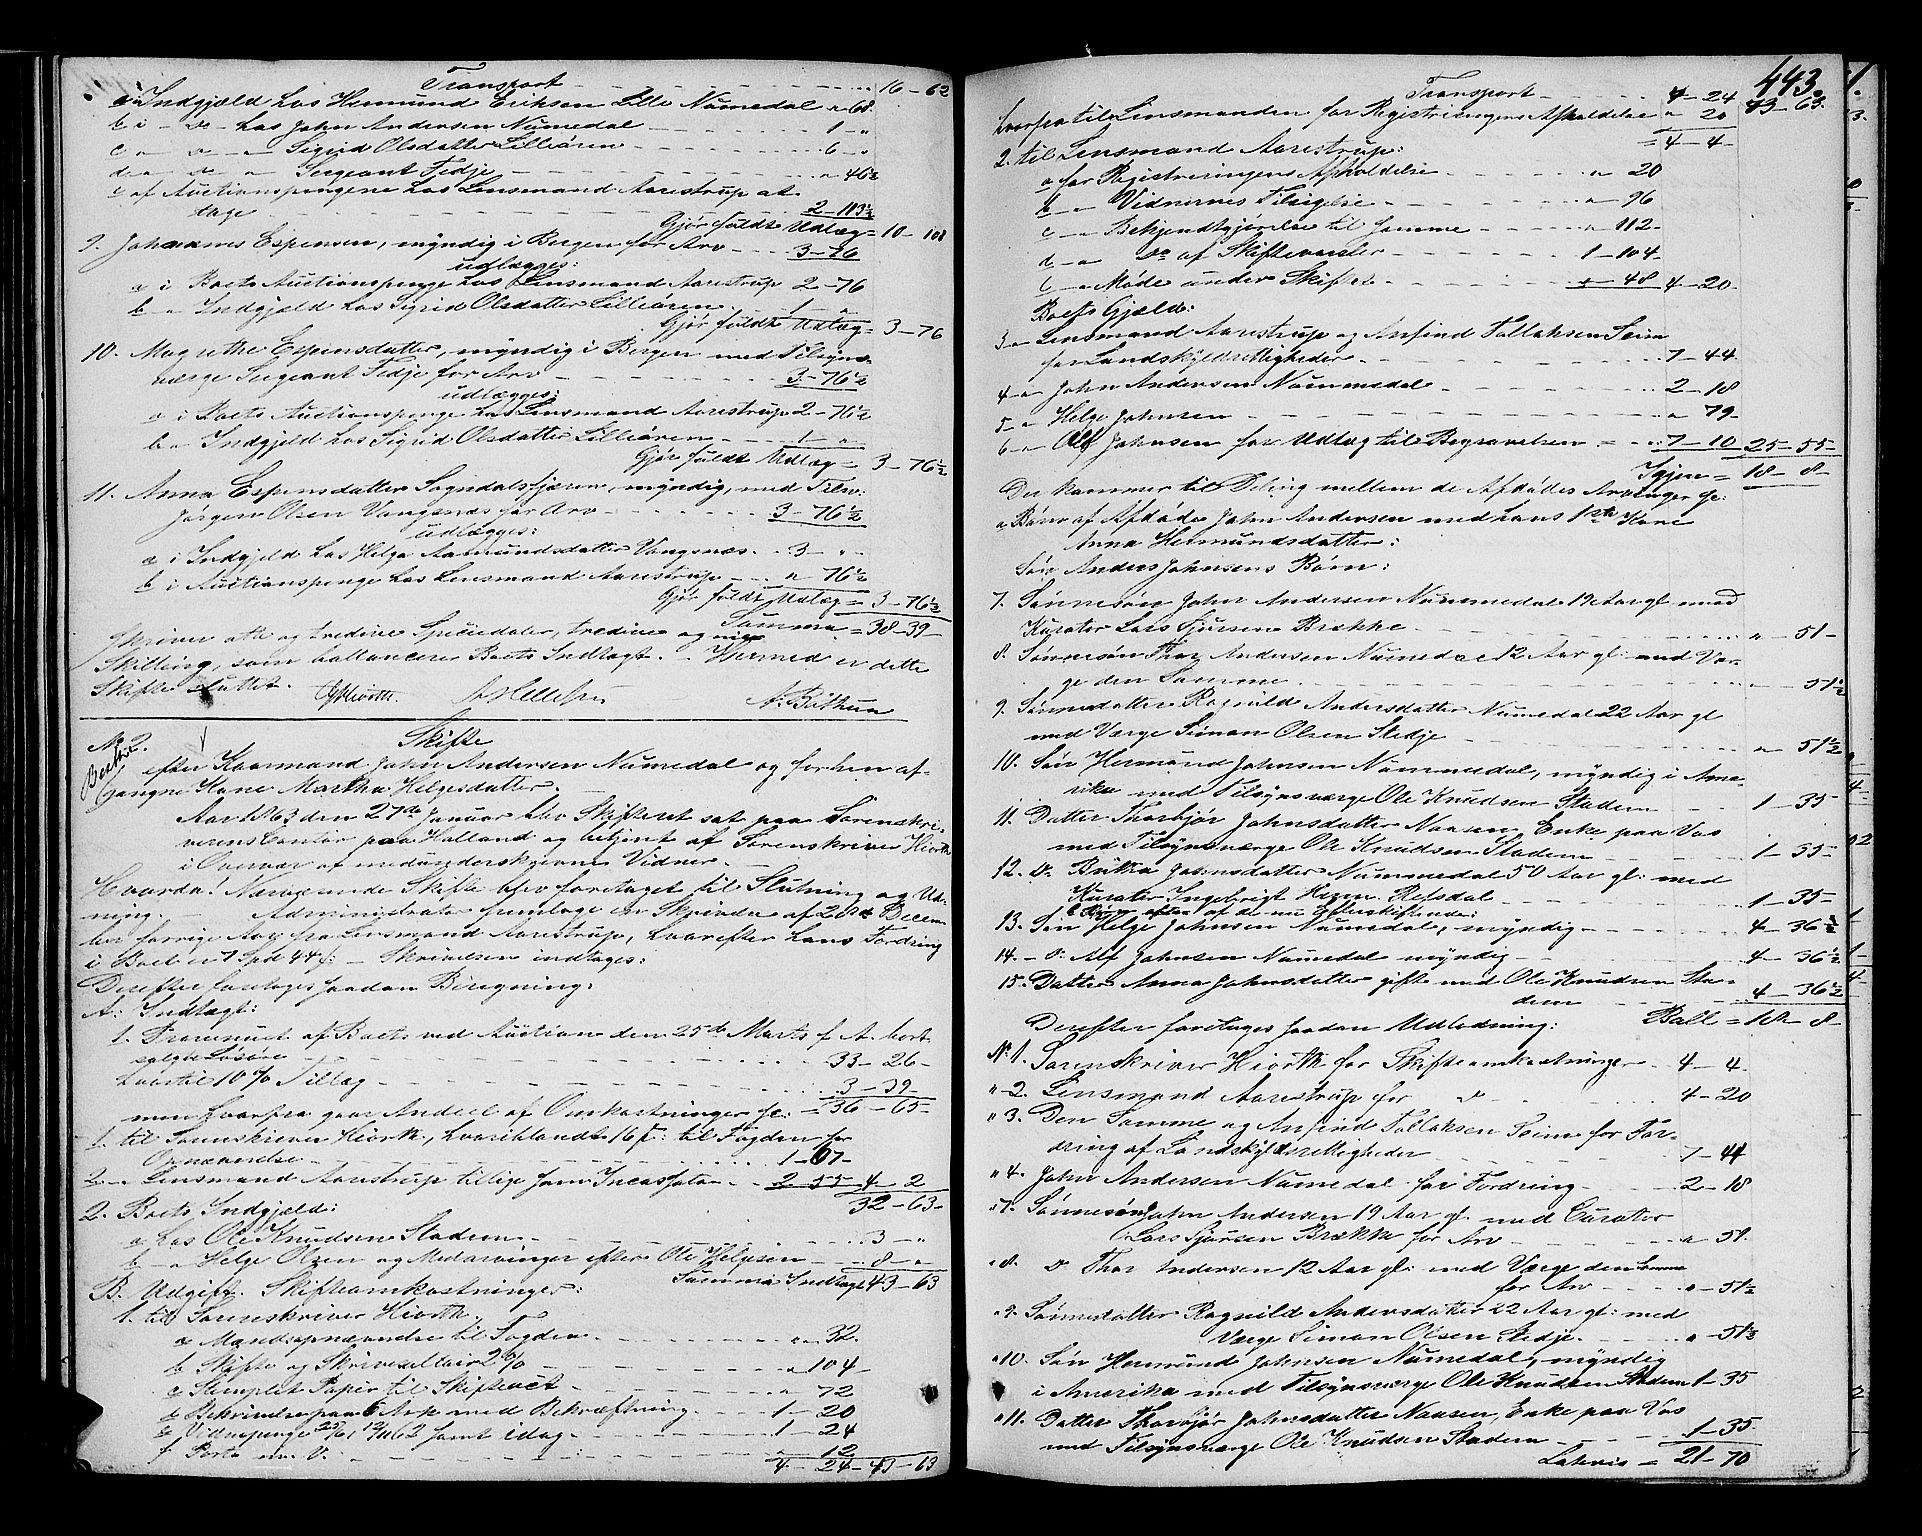 Transport 16 - 62
a i Indgjæld hos Hermund Eriksen Lille Numedal " 68.
b i - do - hos John Andersen Numedal 1 - "
c " - " - " Sigrid Olsdatter Lilleören 6 - "
d " - " - " Sergeant Tedje " 46½
e af Auctionspengene hos Lensmand Aarestrup at
tage 2 - 113½
Gjør fuldt Udlæg = 10 - 108
9. Johannes Espensen, myndig i Bergen for Arv 3 - 76
udlægges:
a i Boets Auctionspenge hos Lensmand Aarestrup 2 - 76
b " Indgjæld hos Sigrid Olsdatter Lilleören 1 - "
Gjør fuldt Udlæg = 3 - 76
10. Magrethe Espensdatter, myndig i Bergen med Tilsyns-
værge Sergeant Tedje for Arv 3 - 76½
udlægges:
a i Boets Auctionspenge hos Lensmand Aarestrup 2 - 76½
b " Indgjæld hos Sigrid Olsdatter Lilleören 1 - "
Gjør fuldt Udlæg = 3 - 76½
11. Anna Espensdatter Sogndalsfjæren, myndig, med Tilsv:
Jörgen Olsen Vangsnæs for Arv 3 - 76½
udlægges:
a i Indgjæld hos Helga Aamundsdatter Vangsnæs 3 - "
b i Auctionspenge hos Lensmand Aarestrup " 76½
Gjør fuldt Udlæg = 3 - 76½
Summa = 38 - 39
skriver otte og tredive Speciedaler, tredive og nige
Skilling, som ballancerer Boets Indtægt. - Hermed er dette
Skifte sluttet. Hiorth. A. Böthun
No 2. Skifte
efter Kaarmand John Andersen Numedal og forhen af-
gangne Kone Martha Helgesdatter.
Aar 1863 den 27de Januar blev Skifteret sat paa Sorenskri-
verens Contor paa Halland og betjent af Sorenskriver Hiorth
i Overvær af medunderskrevne Vidner.
Hvorda! Nærværende Skifte blev foretaget til Slutning og Ud-
ning. Administrator fremlagde en Skrivelse af 20de Decem-
ber forrige Aar fra Lensmand Aarestrup, hvorefter hans Fordring
i Boet er 7 Spd 44 s: - Skrivelsen indtages:
Derefter foretages saadan Beregning:
A: Indtægt:
1. Provenuet af Boets ved Auction den 25de Marts f. A. bort-
solgte Løsøre 33 - 26 -
hvortil 10 % Tillæg 3 - 39 -
men hvorfra gaar Andeel af Omkostninger sc: = 36 - 65 -
1. til Sorenskriver Hiorth, hvoriblandt 16 s: til Fogden for
Opnævnelse 1 - 67 -
2 - " Lensmand Aarestrup tillige som Incassator 2 - 55 - 4 - 2
32 - 63 -
2. Boets Indgjæld:
a hos Ole Knudsen Stadem 3 - "
b - " Helge Olsen og Medarvinger efter Ole Helgesen 8 - "
Summa Indtægt 43 - 63
B. Udgift. Skifteomkostninger:
1. til Sorenskriver Hiorth.
a Mandsopnævnelse til Fogden " 32.
b Skifte og Skriversallair 2 % " 104 -
c Stemplet Papir til Skifteret " 72
d Beskrivelse paa 5 Ark med Bekræftning 1 - 20
e Vidnepenge 25/1, 12/11 62 samt idag 1 - 24
f Porto m. V. " 12
4 - 24 - 43 - 63
443.
Transport 4 - 24 43 - 63.
hvorfra til Lensmanden for Registreringens Afholdelse " 20
= 4 - 4 -
2. til Lensmand Aarestrup:
a for Registreringens Afholdelse " 20
b - " Vidnernes Tilsigelse " 96
c - " Bekjendtgjørelse til Samme " 112 -
d - " do af Skiftevarsler 1 - 104 -
e - " Møde under Skiftet " 48 4 - 20 -
Boets Gjæld:
3 - " Lensmand Aarestrup og Anfind Tollaksen Seim
for Landskyldrettigheder 7 - 44 -
4 - " John Andersen Nummedal 2 - 18
5 - " Helge Johnsen " 79 -
6 - " Olf Johnsen for Udlæg til Begravelsen 7 - 10 25 - 55 -
Igjen = 18 - 8 -
Der kommer til Deling mellem de Afdödes Arvinger sc:
a Børn af Afdöde John Andersen med hans 1ste Kone
Anna Hermundsdatter:
Sön Anders Johnsens Børn:
7. Sönnesön John Andersen Nummedal 19 Aar gl med
Kurator Lars Sjursen Brække " - 51 -
8. Sönnesön Thor Andersen Numedal 12 Aar gl: med Vær-
ge den Samme " - 51½
9. Sönnedatter Ragnild Andersdatter Numedal 22 Aar gl
med Værge Simon Olsen Stedje " - 51½
10. Sön Hermund Johnsen Nummedal, myndig i Ame-
rika med Tilsynsværge Ole Knudsen Stadem 1 - 35
11. Datter Thorbjör Johnsdatter Naasen, Enke paa Vos
med Tilsynsværge Ole Knudsen Stadem 1 - 35 -
12. do. Britha Johnsdatter Nummedal 50 Aar gl: med
Kurator Ingebrigt Refsdal 1 - 35 -
13. Sön Helge Johnsen Numedal, myndig 4 - 36½
14. - do: Alf Johnsen Numedal myndig 4 - 36½
15. Datter Anna Johnsdatter gift med Ole Knudsen Sta-
dem 4 - 36½
Ball = 18 - 8 -
Derefter foretages saadan Udlodning:
No. 1. Sorenskriver Hiorth for Skifteomkostninger 4 - 4.
" 2. Lensmand Aarestrup for do 4 - 20
" 3. Den Samme og Anfind Tollaksen Seim for For-
dring af Landskyldrettigheder 7 - 44
" 4. John Andersen Numedal for Fordring 2 - 18
" 7. Sönnesön John Andersen 19 Aar gl. med Curator
Lars Sjursen Brække for Arv " 51.
" 8. do Thor Andersen 12 Aar gl: med Værge den Samme
for Arv " - 51½
" 9. Sönnedatter Ragnild Andersdatter 22 Aar gl: med
Værge Simon Olsen Stedje " 51½
" 10. Sön Hermund Johnsen Numedal, myndig
i Amerika med Tilsynsværge Ole Knudsen Stadem 1 - 35
" 11. Datter Thorbjör Johnsdatter Naasen, Enke paa Vos
med Tilsynsværge Ole Knudsen Stadem 1 - 35 -
Lateris = 21 - 70